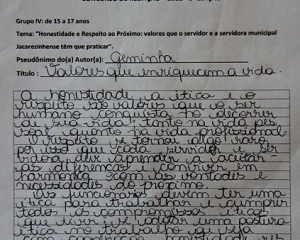 Grupo IV: de 15 a 17 anos
Tema: "Honestidade e Respeito ao Próximo: valores que o servidor e a servidora municipal
Jacarezinhense têm que praticar".
Pseudônimo do(a) Autor(a): Geminha
Título: Valores que enriquecem a vida.
A honestidade, a ética e o
respeito são valores que o ser
humano conquista no decorrer
de sua vida, tanto na vida pes-
soal, quanto na vida profissional.
O respeito se torna algo raro
por isso que cada servido e ser-
vidora deve aprender a aceitar
as diferenças e conviver em
harmonia com as vontades e
necessidades do próximo.
Os funcionários devem ter uma
ética para trabalhar e cumprir
todos os compromissos, ética
que quer e se adotar uma postura
ética no trabalho, ou seja